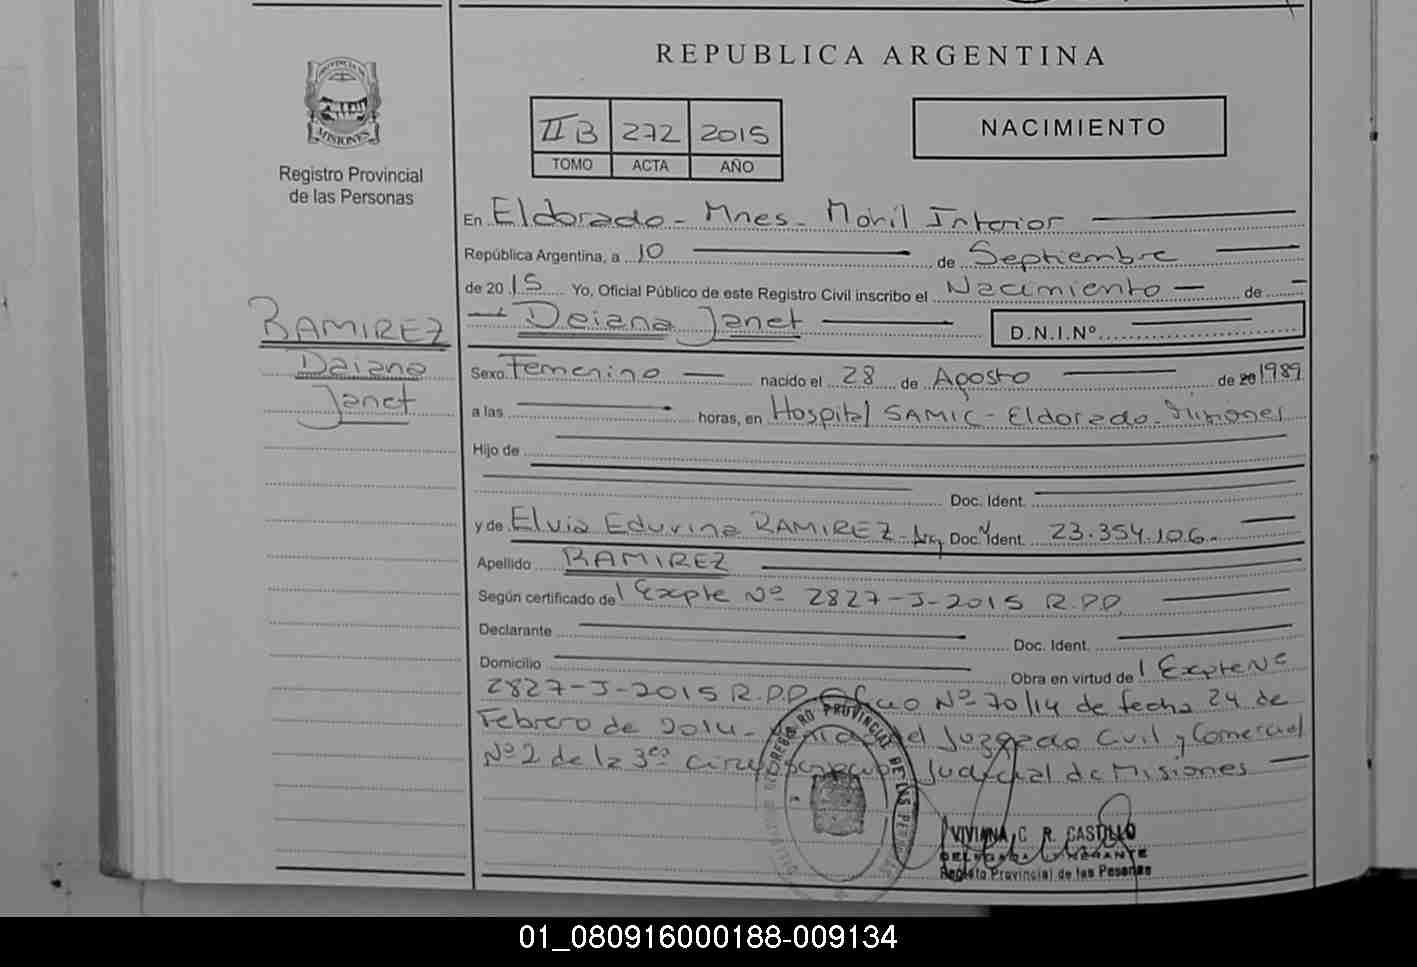 REPUBLICA ARGENTINA
PROVINCIA DE
MISIONES
Registro Provincial
de las Personas
IIB 272 2015
TOMO ACTA AÑO
NACIMIENTO
En Eldorado - Mnes - Móvil Interior
República Argentina, a 10 de Septiembre
de 2015 Yo, Oficial Público de este Registro Civil inscribo el Nacimiento de
Daiana Janet D.N.I.Nº
RAMIREZ
Daiana
Janet
Sexo Femenino nacido el 28 de Agosto de 20 1989
a las horas, en Hospital SAMIC - Eldorado - Misiones
Hijo de
Doc. Ident.
y de Elvia Eduvina RAMIREZ - Arg Doc. Ident. 23.354.106.
Apellido RAMIREZ
Según certificado del Expte Nº 2827-J-2015 R.P.P.
Declarante Doc. Ident.
Domicilio Obra en virtud del Expte Nº
2827-J-2015 R.P.P. Oficio Nº 70/14 de fecha 24 de
Febrero de 2014 - del Juzgado Civil y Comercial
Nº2 de la 3era Circunscripción Judicial de Misiones
REGISTRO PROVINCIAL DE LAS PERSONAS
VIVIANA C. R. CASTILLO
DELEGADA ITINERANTE
Registro Provincial de las Personas
01_080916000188-009134